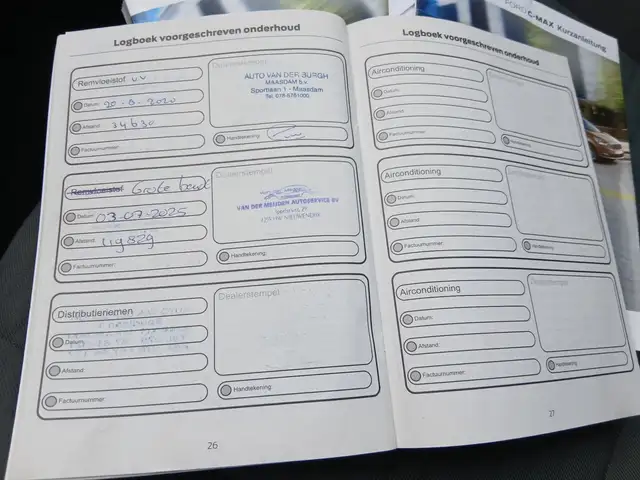 FORD C-MAX Kurzanleitung
Logboek voorgeschreven onderhoud
Remvloeistof v.v
Datum: 20-8-2020
Afstand: 34630
Factuurnummer:
Dealerstempel
AUTO VAN DER BURGH
MAASDAM b.v.
Sportlaan 1 - Maasdam
Tel. 078-6761000
Handtekening:
Remvloeistof Grote beurt
Datum: 03-07-2025
Afstand: 49829
Factuurnummer:
Dealerstempel
VAN DER MEIJDEN AUTOSERVICE BV
Handtekening:
Distributieriemen
Datum:
Afstand:
Factuurnummer:
Dealerstempel
Handtekening:
26
Logboek voorgeschreven onderhoud
Airconditioning
Datum:
Afstand:
Factuurnummer:
Dealerstempel
Handtekening:
Airconditioning
Datum:
Afstand:
Factuurnummer:
Dealerstempel
Handtekening:
Airconditioning
Datum:
Afstand:
Factuurnummer:
Dealerstempel
Handtekening:
27